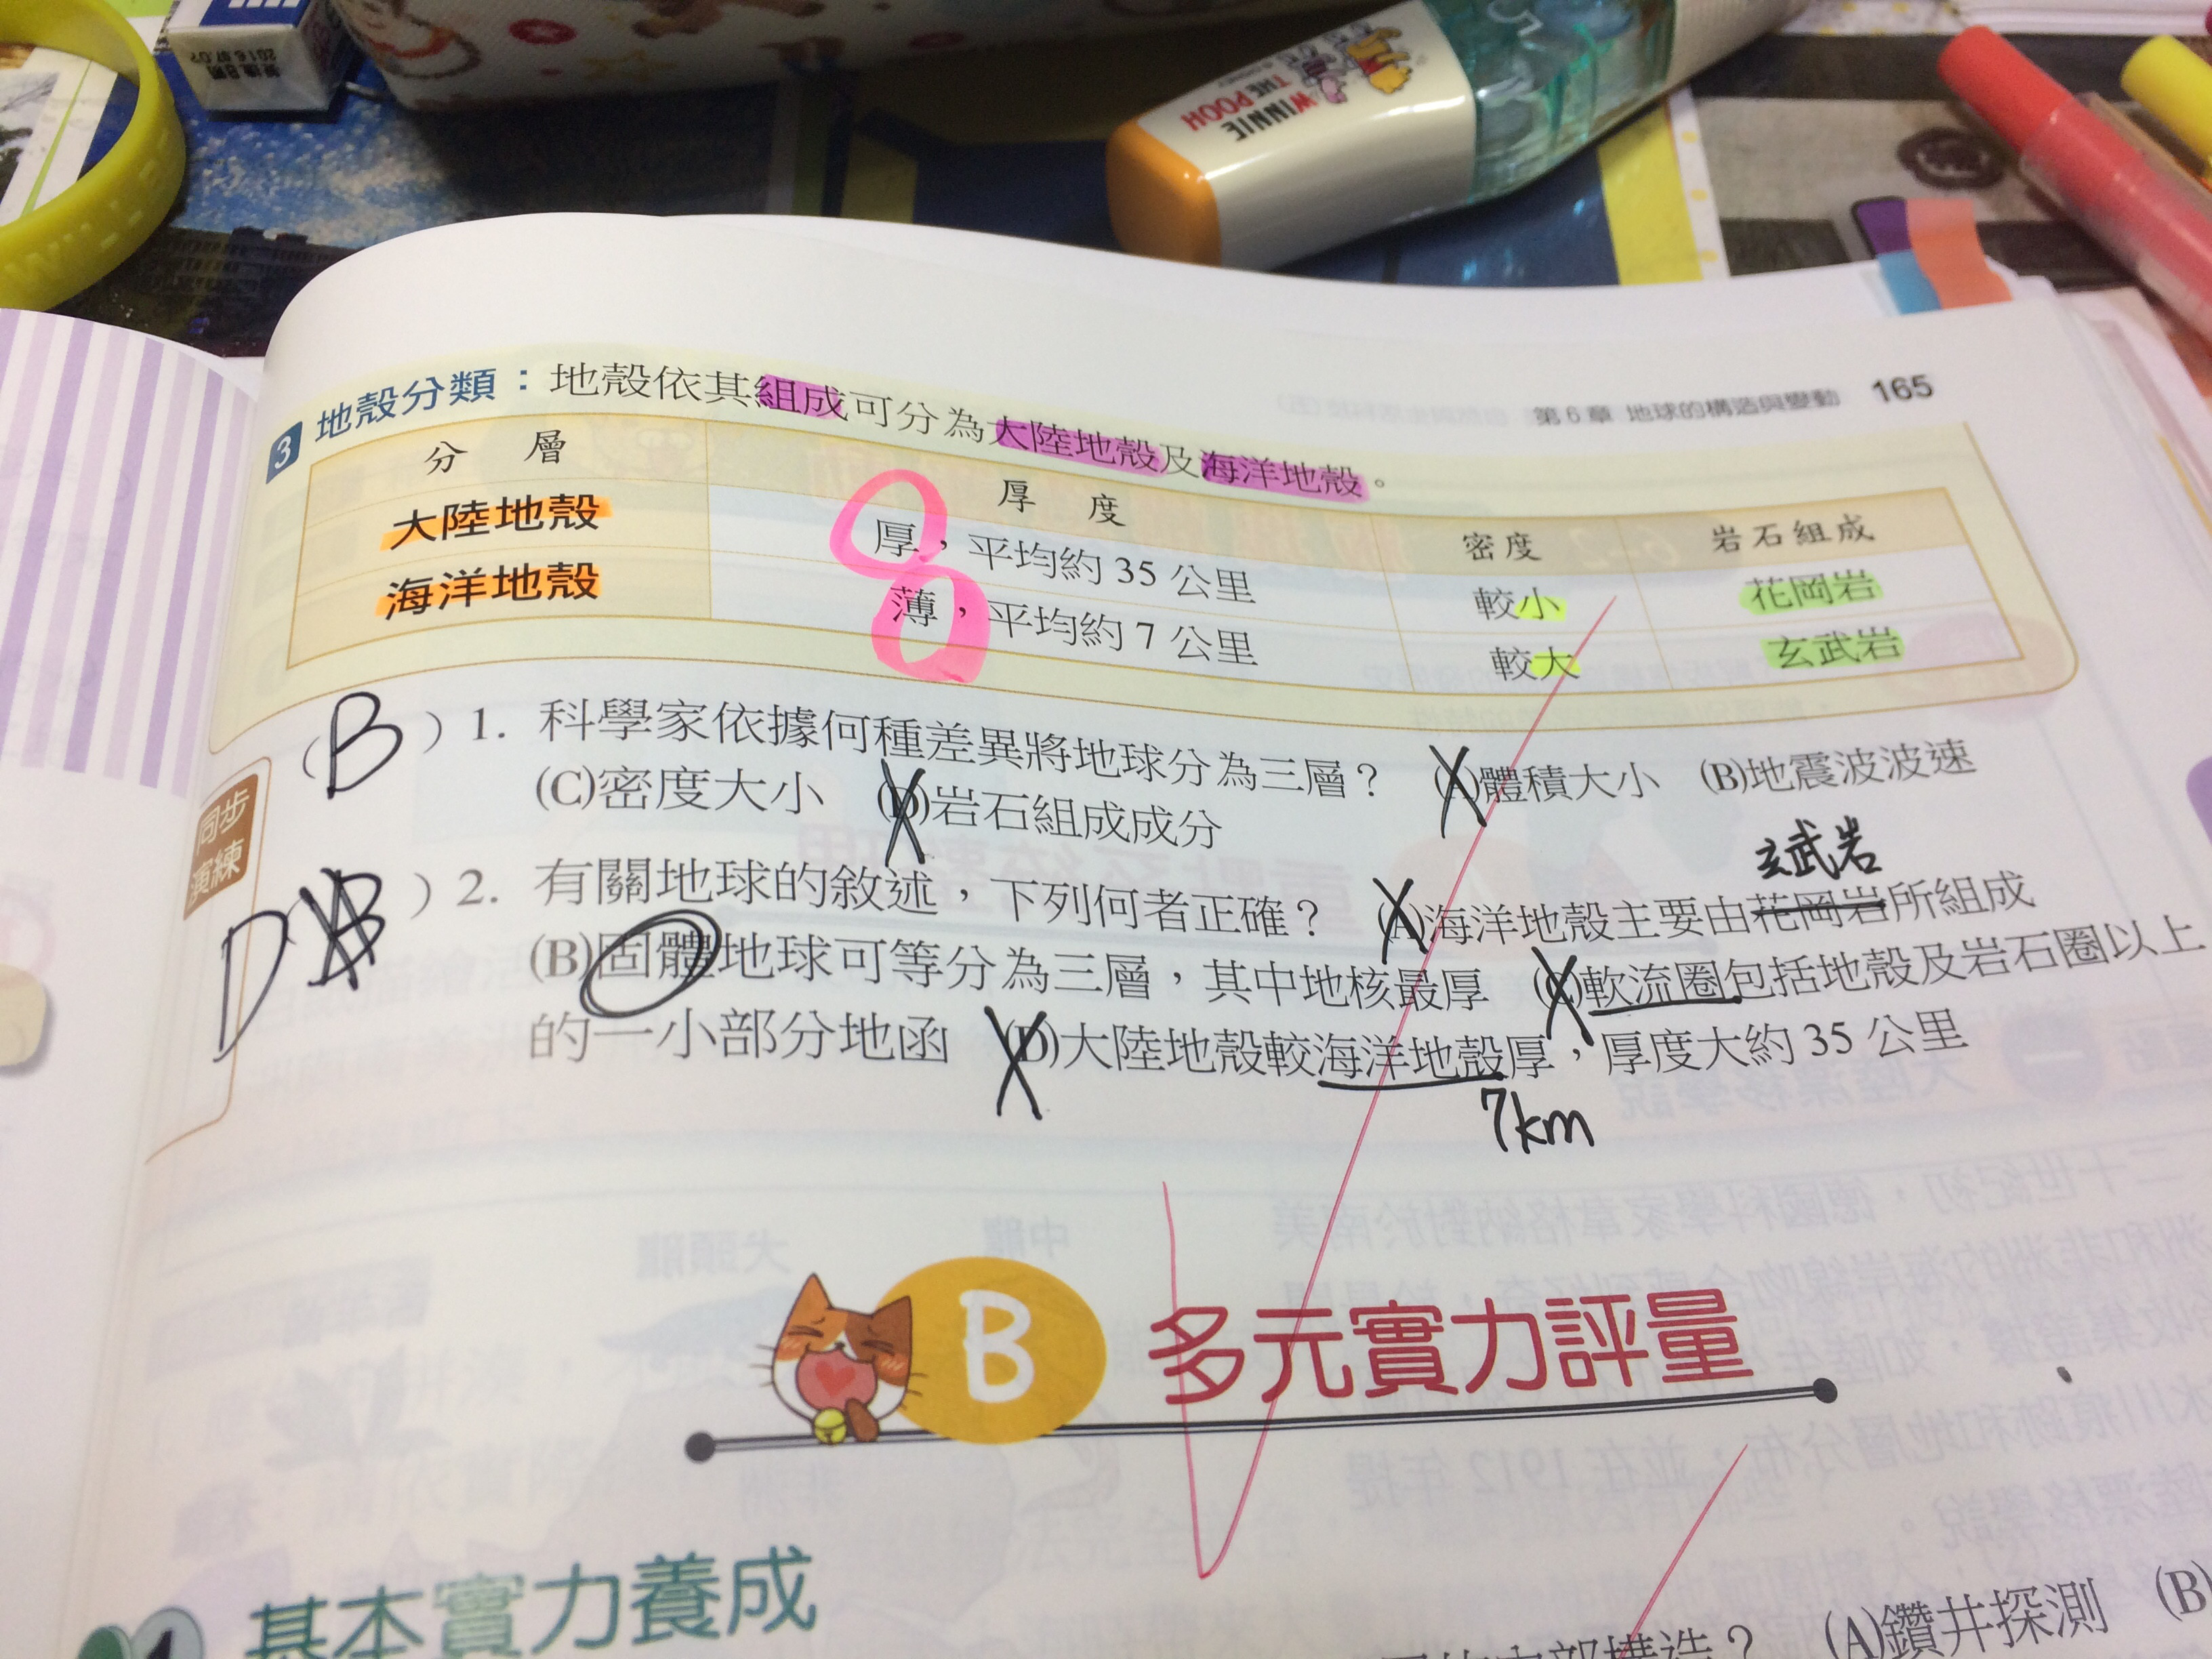 最後日期
2016.07.07
WINNIE
THE POOH
第6章 地球的構造與變動 165
3 地殼分類：地殼依其組成可分為大陸地殼及海洋地殼。
分層 厚度 密度 岩石組成
大陸地殼 厚，平均約 35 公里 較小 花岡岩
海洋地殼 薄，平均約 7 公里 較大 玄武岩
同步
演練
(B) 1. 科學家依據何種差異將地球分為三層？ (A)體積大小 (B)地震波波速
(C)密度大小 (D)岩石組成成分
玄武岩
D B ) 2. 有關地球的敘述，下列何者正確？ (A)海洋地殼主要由花岡岩所組成
(B)固體地球可等分為三層，其中地核最厚 (C)軟流圈包括地殼及岩石圈以上
的一小部分地函 (D)大陸地殼較海洋地殼厚，厚度大約 35 公里
7km
B 多元實力評量
基本實力養成
構造？ (A)鑽井探測 (B)